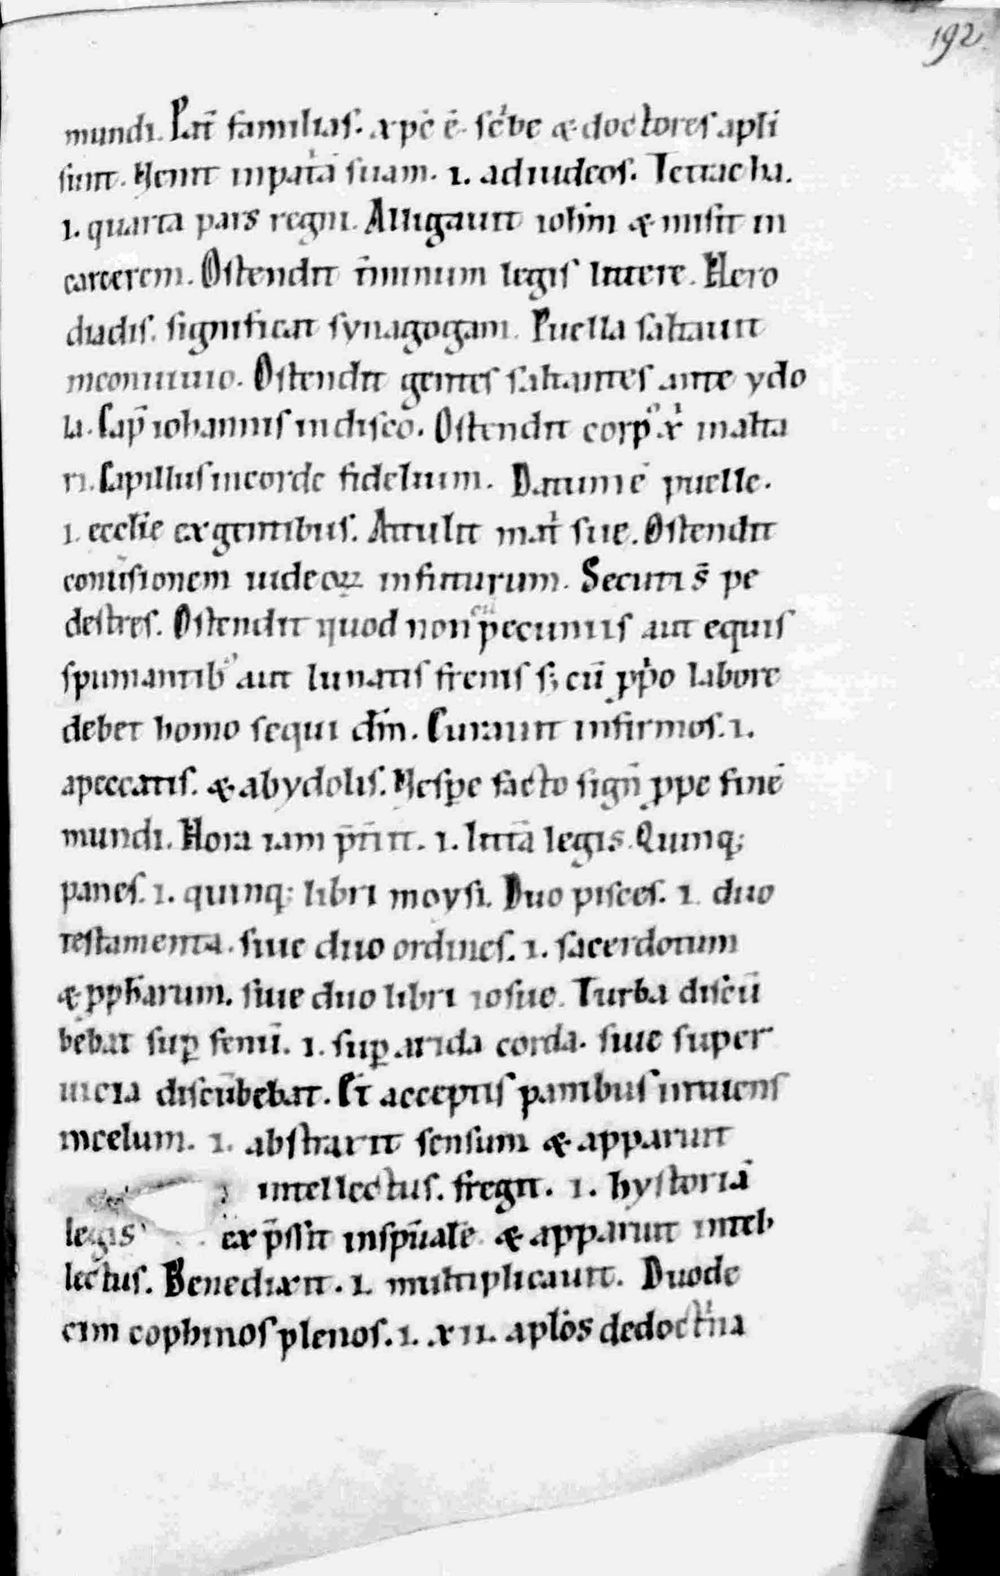 192
mundi. Pat̄ familias. xp̄c ē. sc͛be & doctores apl̄i
sunt. Uenit inpat͛ā suam. .i. adiudeos. Tetracha.
.i. quarta pars regni. Alligauit ioh̄m & misit in
carcerem. Ostendit t̄minum legis littere. Hero
diadis. significat synagogam. Puella saltauit
inconuiuio. Ostendit gentes saltantes ante ydo
la. Cap̄ iohannis indisco. Ostendit corp᷒ xp̄i inalta
ri. Capillus incorde fidelium. Datum ē puelle.
.i. eccl̄ie exgentibus. Attulit mat͛ sue. Ostendit
conūsionem iudeoꝝ infinturum. Secuti s̄ pe
destres. Ostendit quod non cū pecuniis aut equis
spumantib᷒ aut lunatis frenis s; cū ꝓp͛o labore
debet homo sequi dn̄m. Curauit infirmos. .i.
apeccatis. & abydolis. Uesp̄e facto sign̄ ꝓpe finē
mundi. Hora iam p̄t̄iit. .i. litt̄a legis. Quinq;
panes. .i. quinq; libri moysi. Duo pisces. .i. duo
testamenta. siue duo ordines. .i. sacerdotum
& ꝓph̄arum. siue duo libri iosue. Turba discū
bebat suꝑ fenū. .i. suꝑ arida corda. siue super
uicia discūbebat. Et acceptis panibus intuens
incelum. .i. abstraxit sensum & apparuit
intellectus. fregit. .i. hystoriā
legis exp̄ssit inspūalē & apparuit intel
lectus. Benedixit. .i. multiplicauit. Duode
cim cophinos plenos. .i. .xii. apl̄os dedoct͛na